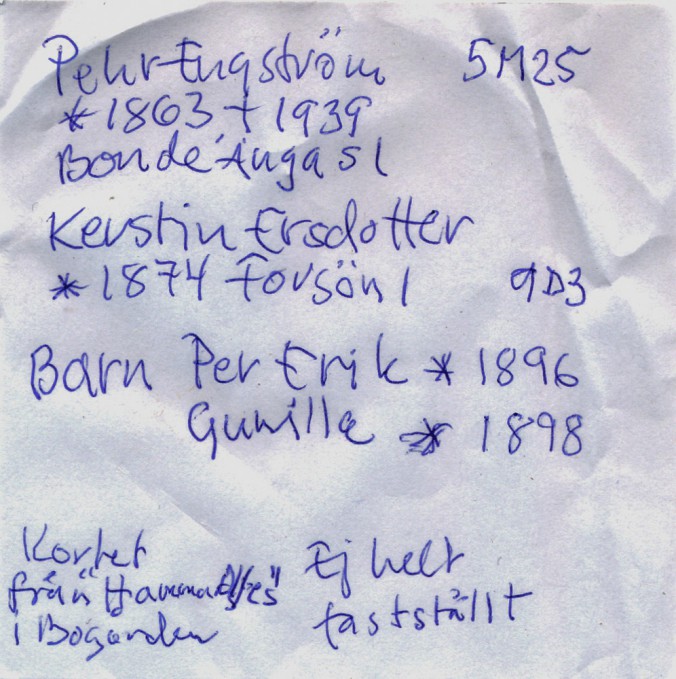 Pehr Engström 5M25
* 1863 † 1939
Bonde, Änga s1
Kerstin Ersdotter
* 1874 Forsön 1 9D3
Barn Per Erik * 1896
Gunilla * 1898
Kortet
från
i Bogården
Ej helt
fastställt